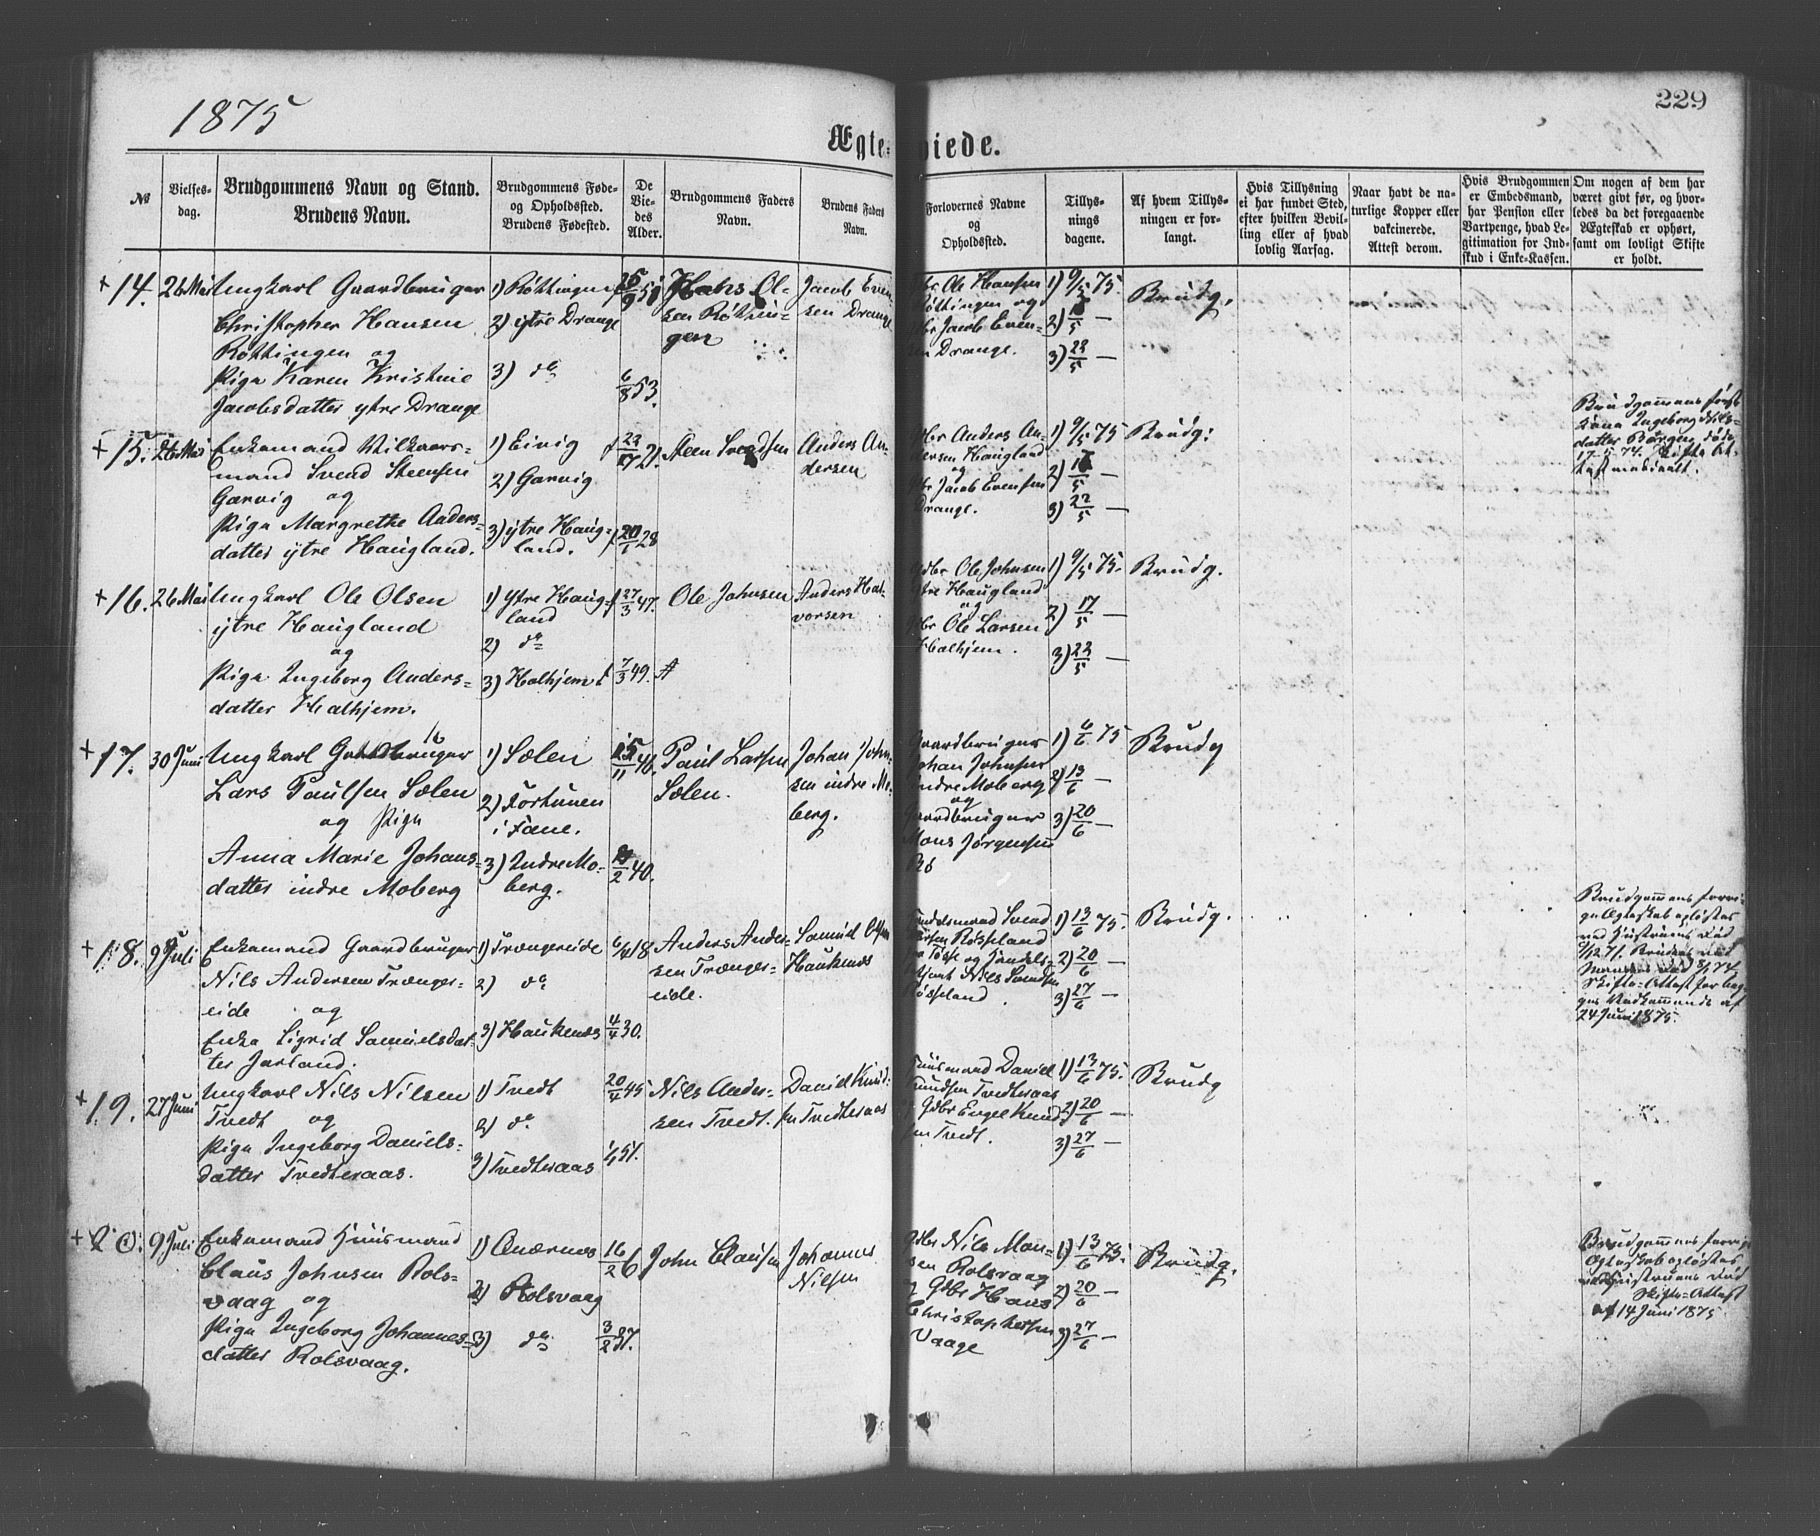 1875
229
Ægte-
viede.
№
Vielses-
dag.
Brudgommens Navn og Stand.
Brudens Navn.
Brudgommens Føde-
og Opholdssted.
Brudens Fødested.
De
Vie-
des
Alder.
Brudgommens Faders
Navn.
Brudens Faders
Navn.
Forlovernes Navne
og
Opholdssted.
Tillys-
nings
dagene.
Af hvem Tillys-
ningen er for-
langt.
Hvis Tillysning
ei har fundet Sted,
efter hvilken Bevil-
ling eller af hvad
lovlig Aarsag.
Naar havt de na-
turlige Kopper eller
vakcinerede.
Attest derom.
Hvis Brudgommen
er Embedsmand,
har Pension eller
Vartpenge, hvad Le-
gitimation for Ind-
skud i Enke-Kassen.
Om nogen af dem har
været givt før, og hvor-
ledes da det foregaaende
Ægteskab er ophørt,
samt om lovligt Skifte
er holdt.
+ 14. 26 Mai
Ungkarl Gaardbruger
Christopher Hansen
Røttingen og
Pige Karen Kristine
Jacobsdatter ytre Drange
1) Røttingen
2) ytre Drange
3) do
6/8 53.
Hans Ol-
sen Røttin-
gen
Jacob Even-
sen Drange
Gbr Ole Hansen
Røttingen og
Gbr Jacob Even-
sen Drange.
1) 9/5 75.
2) 16/5 —
3) 22/5 —
Brudg.
+ 15. 26 Mai
Enkemand Vilkaars-
mand Svend Steensen
Garvig og
Pige Margrethe Anders-
datter ytre Haugland.
1) Eivig
2) Garvig
3) ytre Haug-
land.
20/6 28
Steen Svendsen
Anders An-
dersen
Gbr Anders An-
dersen Haugland
og
Gbr Jacob Evensen
Drange.
1) 9/5 75
2) 16/5 —
3) 22/5 —
Brudg:
Brudgommens første
Kone Ingeborg Nils-
datter Børgen døde
17-5-74. Skifte At-
test
+ 16. 26 Mai
Ungkarl Ole Olsen
ytre Haugland
og
Pige Ingeborg Anders-
datter Halhjem.
1) Ytre Haug-
land
2) do
3) Halhjem
27/3 47.
7/3 49.
Ole Johnsen
Anders Hal-
vorsen
Gdbr Ole Johnsen
ytre Haugland
og
Gbr Ole Larsen
Halhjem.
1) 9/5 75.
2) 17/5 —
3) 22/5 —
Brudg.
+ 17. 30 Juni
Ungkarl Gaardbruger
Lars Paulsen Sælen
og Pige
Anna Marie Johans-
datter indre Moberg
1) Sælen
2) Fortunen
i Fane.
3) Indre Mo-
berg.
15/11 46.
2 40.
Paul Larsen
Sælen.
Johan John-
sen indre Mo-
berg.
Gaardbruger
Johan Johnsen
indre Moberg
og
Gaardbruger
Mons Jørgensen
Rø
1) 6/6 75
2) 13/6 —
3) 20/6 —
Brudg
+ 18. 9 Juli
Enkemand Gaardbruger
Nils Andersen Trænger-
eide og
Enke Sigrid Samuelsdat-
ter Jarland.
1) Trængereide
2) do
3) Haukenæs
6/4 18
4/4 30.
Anders Ander-
sen Trænger-
eide.
Samuel Olsen
Haukenæs
Handelsmand Svend
Larsen Røsseland
og Handels-
betjent Nils Svendsen
Røsseland
1) 13/6 75.
2) 20/6 —
3) 27/6 —
Brudg.
Brudgommens forri-
ge Ægteskab opløstes
ved Hustruens Død
2/12 71. Brudens ved
Mandens Død 8/1 74.
Skifte-Attest for beg-
ges Vedkommende af
24 Juni 1875.
+ 19. 27 Juni
Ungkarl Nils Nilsen
Tvedt og
Pige Ingeborg Daniels-
datter Tvedteraas.
1) Tvedt
2) do
3) Tvedteraas
20/4 45
1/4 51.
Nils Ander-
sen Tvedt.
Daniel Knud-
sen Tvedteraas
Huusmand Daniel
Knudsen Tvedteraas
Gdbr Engel Knud-
sen Tvedt.
1) 13/6 75.
2) 20/6 —
3) 27/6 —
Brudg
+ 20. 9 Juli
Enkemand Huusmand
Claus Johnsen Rols-
vaag og
Pige Ingeborg Johannes-
datter Rolsvaag.
1) Qværnes
2) Rolsvaag
3) do
16/2 26
3/2 37.
John Clausen
Johannes
Nilsen
Gdbr Nils Mon-
sen Rolsvaag
og Gbr Hans
Christophersen
Vaage
1) 13/6 75.
2) 20/6 —
3) 27/6 —
Brudg.
Brudgommens forrige
Ægteskab opløstes
ved Hustruens Død
Skifte-Attest
af 14 Juni 1875